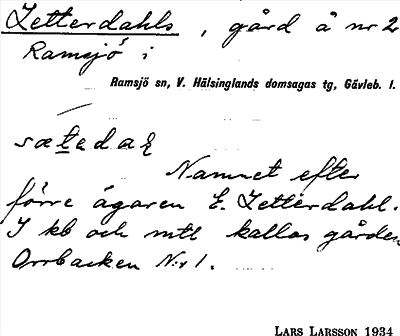 Zetterdahls, gård å nr 2
Ramsjö i
Ramsjö sn, V. Hälsinglands domsagas tg, Gävleb. l.
Namnet efter
förre ägaren E. Zetterdahl.
I kb och mtl kallas gården
Orrbacken Nr 1.
LARS LARSSON 1934